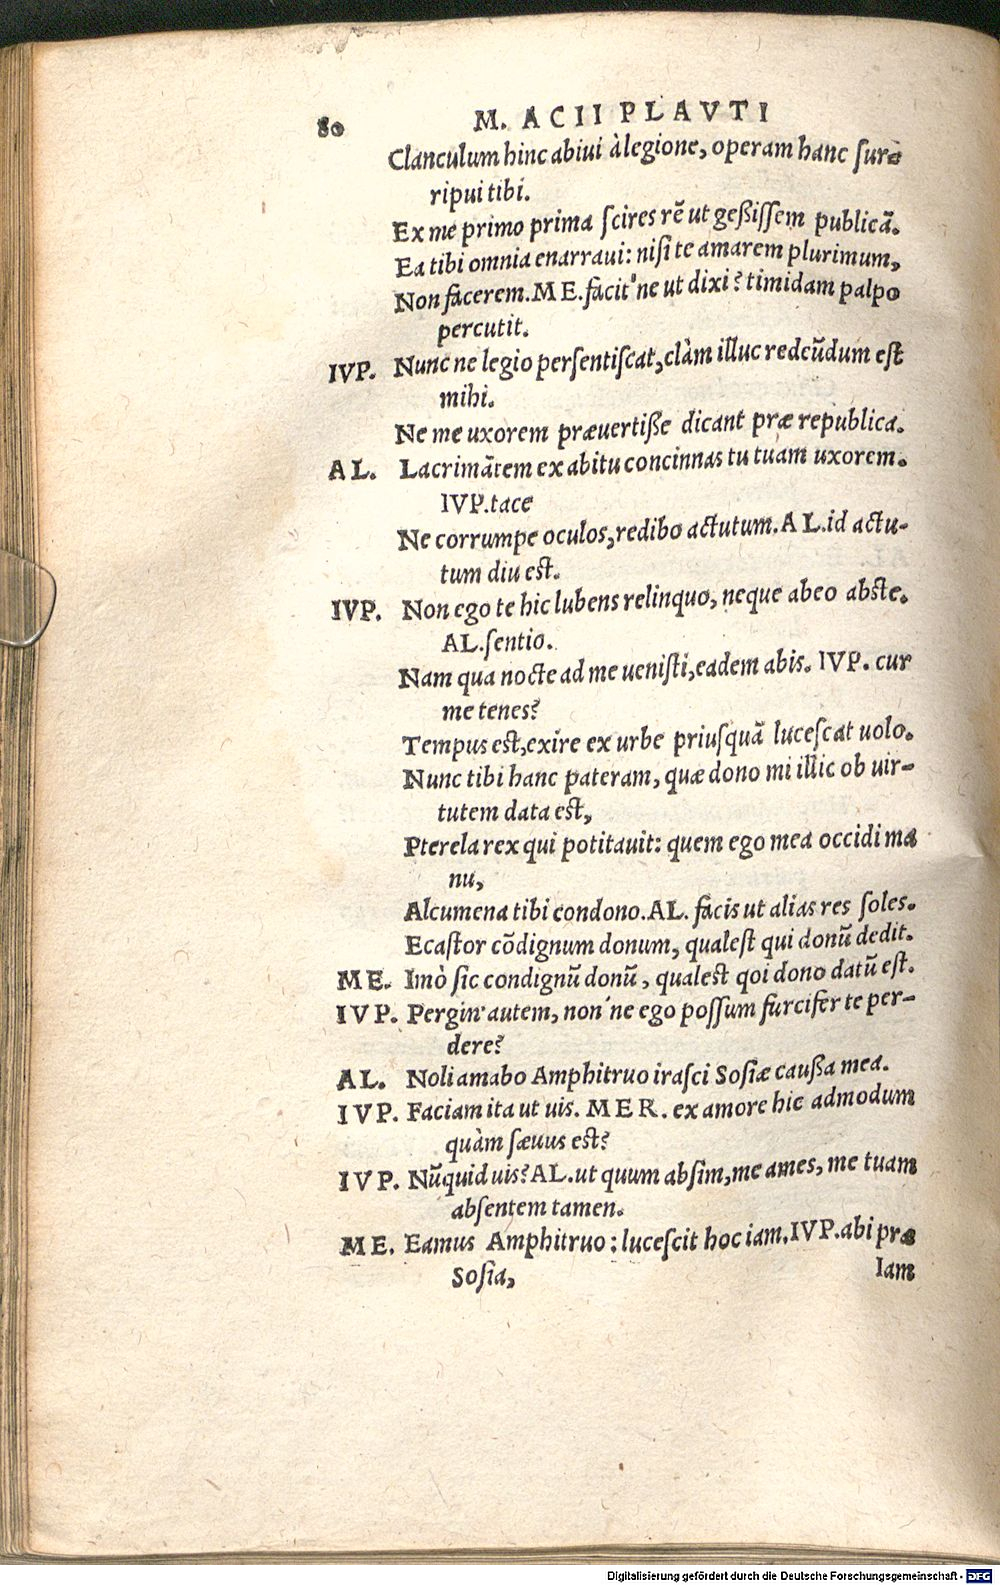 80 M. ACII PLAVTI
Clanculum hinc abiui à legione, operam hanc sur-
ripui tibi.
Ex me primo prima scires rē ut geßissem publicā.
Ea tibi omnia enarraui: nisi te amarem plurimum,
Non facerem. ME. facit'ne ut dixi? timidam palpo
percutit.
IVP. Nunc ne legio persentiscat, clàm illuc redeūdum est
mihi.
Ne me uxorem præuertiße dicant præ republica.
AL. Lacrimātem ex abitu concinnas tu tuam uxorem.
IVP. tace
Ne corrumpe oculos, redibo actutum. AL. id actu-
tum diu est.
IVP. Non ego te hic lubens relinquo, neque abeo abste.
AL. sentio.
Nam qua nocte ad me uenisti, eadem abis. IVP. cur
me tenes?
Tempus est, exire ex urbe priusquā lucescat uolo.
Nunc tibi hanc pateram, quæ dono mi illic ob uir-
tutem data est,
Pterela rex qui potitauit: quem ego mea occidi ma
nu,
Alcumena tibi condono. AL. facis ut alias res soles.
Ecastor cōdignum donum, qualest qui donū dedit.
ME. Imò sic condignū donū, qualest qoi dono datū est.
IVP. Pergin' autem, non'ne ego possum furcifer te per-
dere?
AL. Noli amabo Amphitruo irasci Sosiæ caußa mea.
IVP. Faciam ita ut uis. MER. ex amore hic admodum
quàm sæuus est?
IVP. Nūquid uis? AL. ut quum absim, me ames, me tuam
absentem tamen.
ME. Eamus Amphitruo: lucescit hoc iam. IVP. abi præ
Sosia, Iam
Digitalisierung gefördert durch die Deutsche Forschungsgemeinschaft - DFG